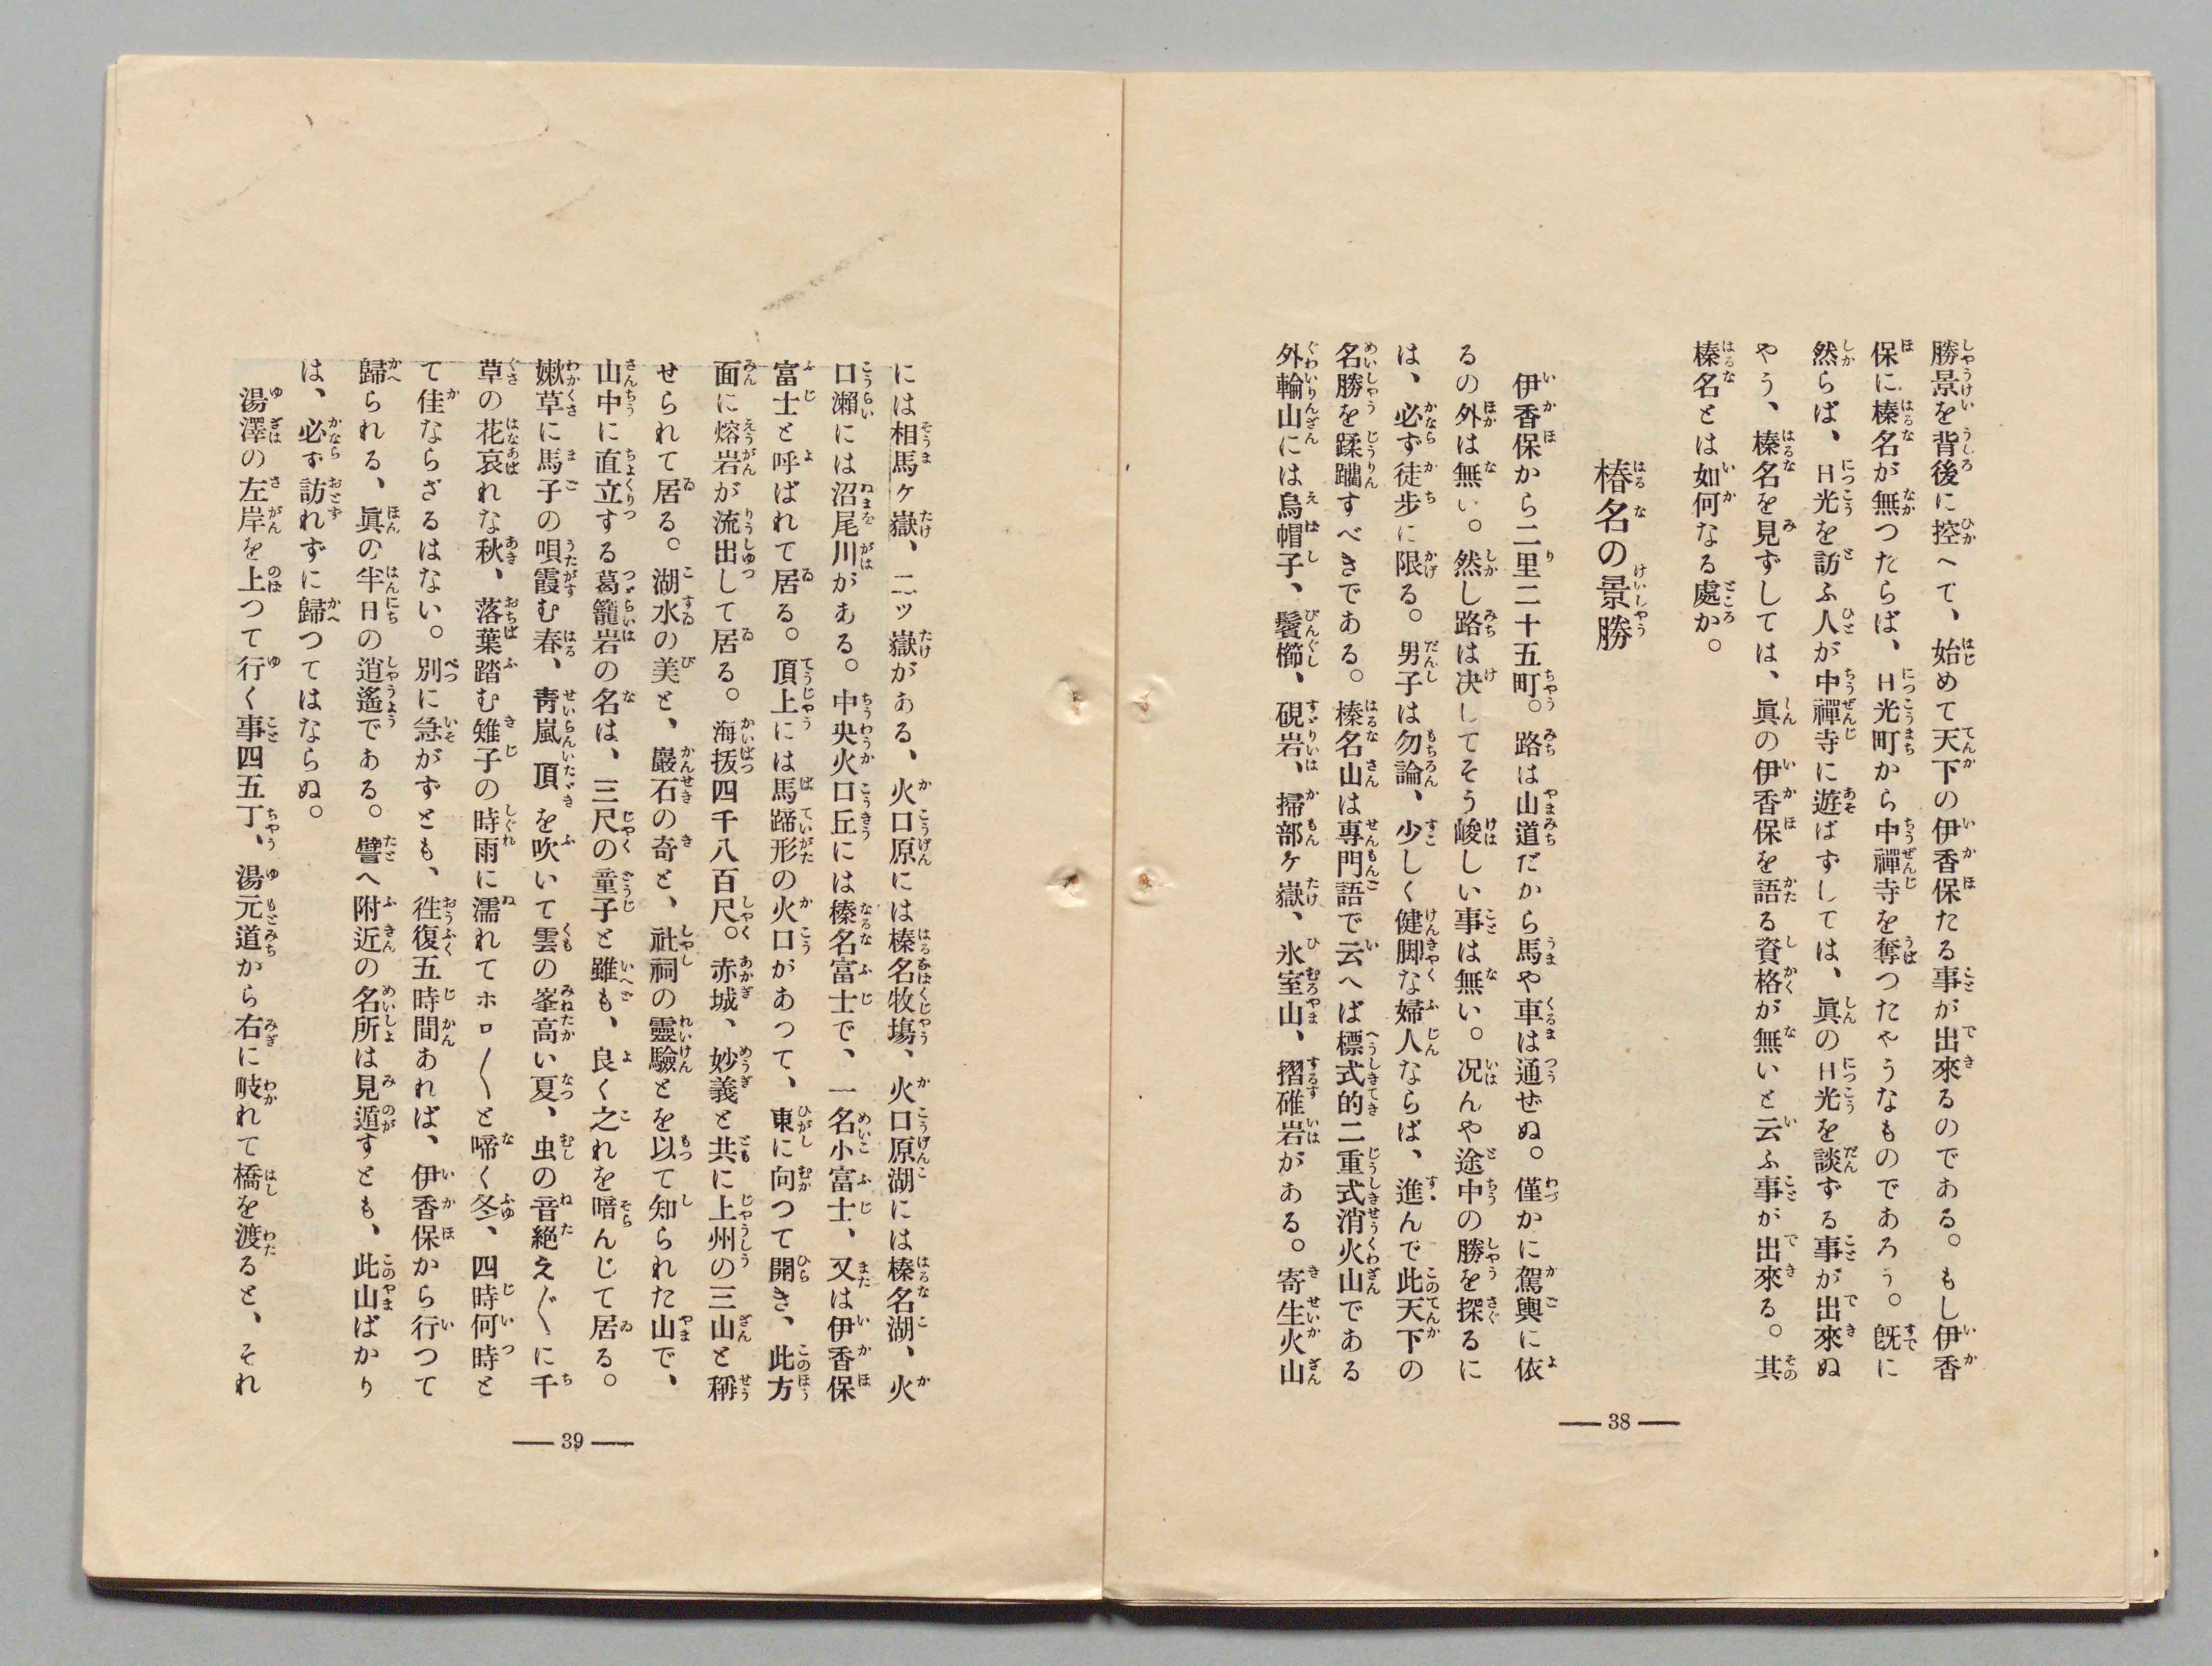 勝景を背後に控へて、始めて天下の伊香保たる事が出來るのである。もし伊香
保に榛名が無つたらば、日光町から中禪寺を奪つたやうなものであろう。既に
然らば、日光を訪ふ人が中禪寺に遊ばずしては、眞の日光を談ずる事が出來ぬ
やう、榛名を見ずしては、眞の伊香保を語る資格が無いと云ふ事が出來る。其
榛名とは如何なる處か。
椿名の景勝
伊香保から二里二十五町。路は山道だから馬や車は通ぜぬ。僅かに駕輿に依
るの外は無い。然し路は决してそう峻しい事は無い。况んや途中の勝を探るに
は、必ず徒歩に限る。男子は勿論、少しく健脚な婦人ならば、進んで此天下の
名勝を蹂躙すべきである。榛名山は專門語で云へば標式的二重式消火山である
外輪山には烏帽子、鬢櫛、硯岩、掃部ヶ嶽、氷室山、摺碓岩がある。寄生火山
38
には相馬ヶ嶽、二ッ嶽がある、火口原には榛名牧塲、火口原湖には榛名湖、火
口瀨には沼尾川がある。中央火口丘には榛名富士で、一名小富士、又は伊香保
富士と呼ばれて居る。頂上には馬蹄形の火口があって、東に向つて開き、此方
面に熔岩が流出して居る。海抜四千八百尺。赤城、妙義と共に上州の三山と稱
せられて居る。湖水の美と、巖石の奇と、社祠の靈驗とを以て知られた山で、
山中に直立する葛籠岩の名は、三尺の童子と雖も、良く之れを暗んじて居る。
嫩草に馬子の唄霞む春、靑嵐頂を吹いて雲の峯高い夏、虫の音絶え〴〵に千
草の花哀れな秋、落葉踏む雉子の時雨に濡れてホロ〳〵と啼く冬、四時何時と
て佳ならざるはない。別に急がずとも、徃復五時間あれば、伊香保から行つて
歸られる、眞の半日の逍遙である。譬へ附近の名所は見遁すとも、此山ばかり
は、必ず訪れずに歸つてはならぬ。
湯澤の左岸を上つて行く事四五丁、湯元道から右に岐れて橋を渡ると、それ
39